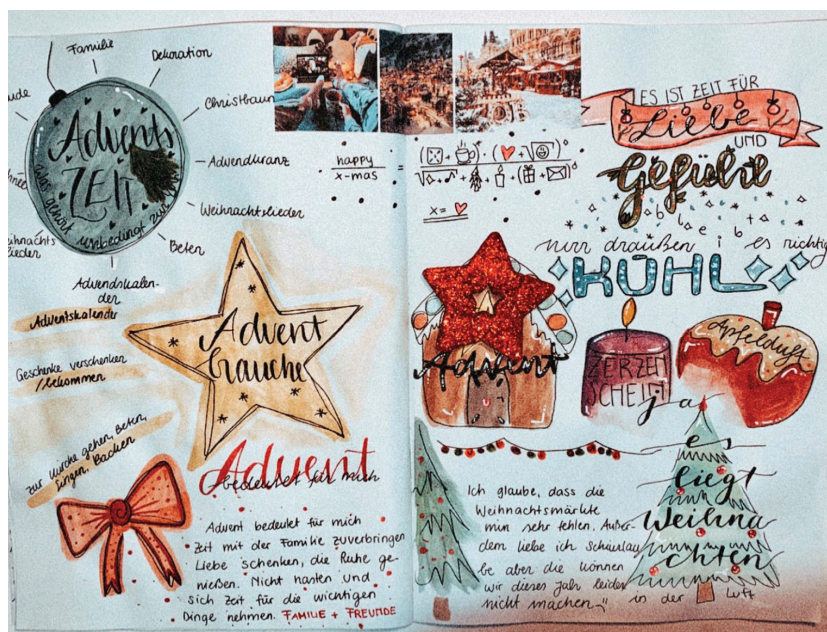 Familie
Dekoration
Christbaum
Advendkranz
Weihnachtslieder
Beten
Advendskalen-
der
Advents
ZEIT
Was gehört unbedingt zur
Adventskalender
Geschenke verschenken
/bekommen
zur Kirche gehen, Beten,
singen, Backen
Advent
bräuche
Advent
bedeutet für mich
Advent bedeutet für mich
Zeit mit der Familie zuverbringen
Liebe schenken, die Ruhe ge-
nießen. Nicht hasten und
sich Zeit für die wichtigen
Dinge nehmen. FAMILIE + FREUNDE
happy
x-mas
=
x=
ES IST ZEIT FÜR
Liebe
UND
Gefühl
bleibt
nur draußen i es richtig
KÜHL
Advent
KERZEN
SCHEIN
Apfelduft
ja
es
liegt
Weihna
chten
in der Luft
Ich glaube, dass die
Weihnachtsmärkte
mir sehr fehlen. Außer-
dem liebe ich Schislau
be aber die können
wir dieses Jahr leider
nicht machen